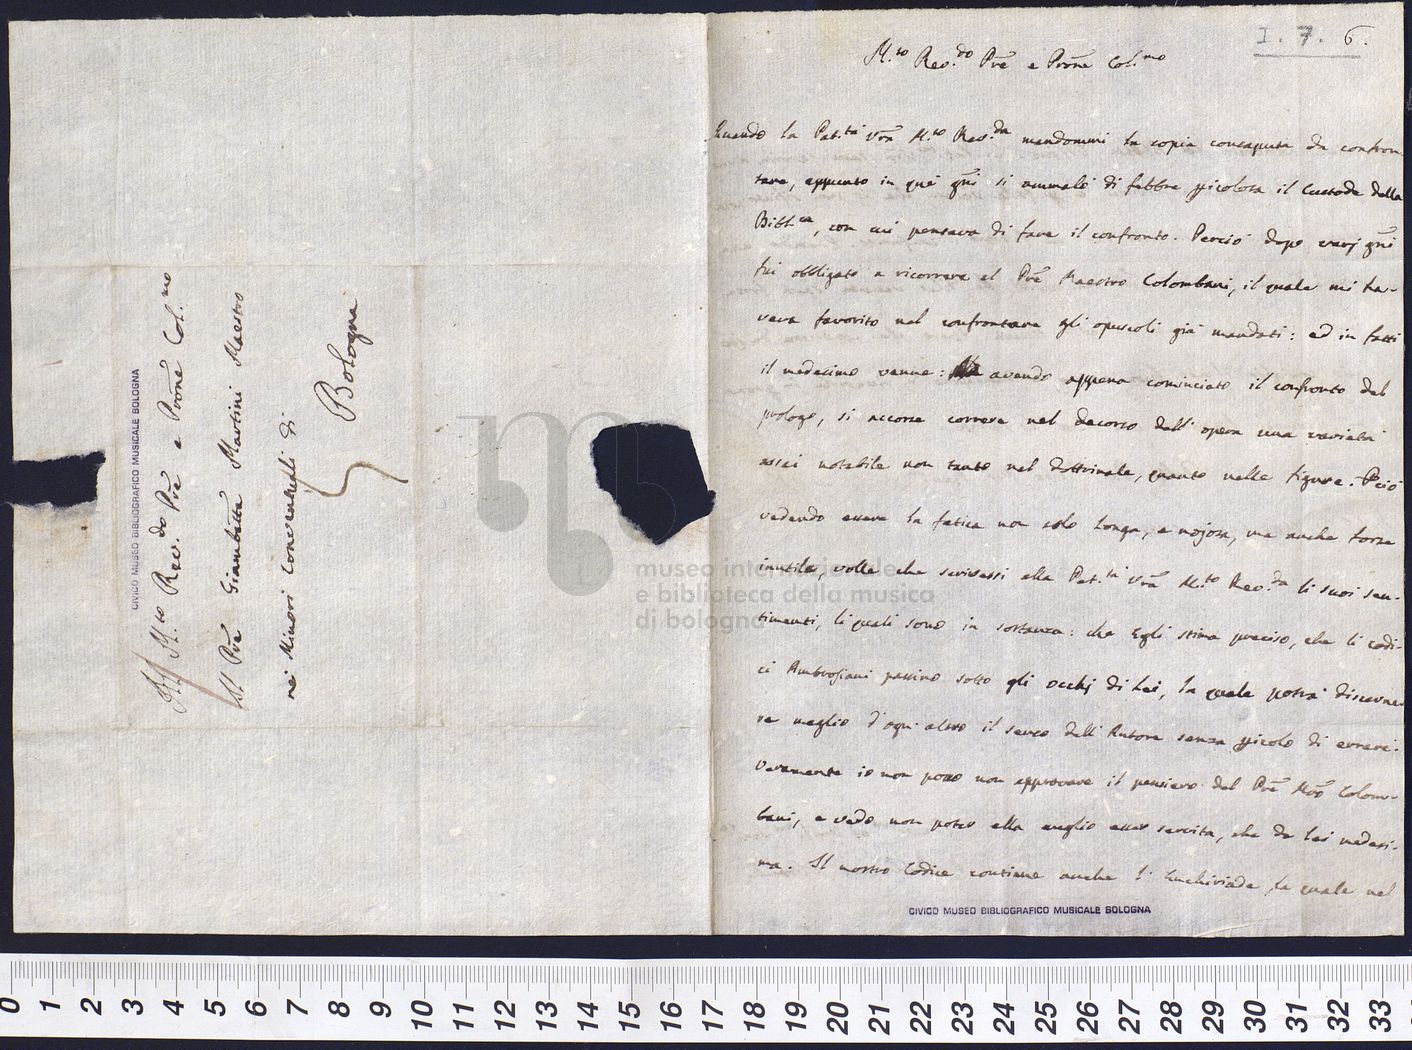 Al M.to Rev.do Pre e Prone Col.mo
Il Pre Giambatta Martini Maestro
nei Minori Conventuali di
Bologna
CIVICO MUSEO BIBLIOGRAFICO MUSICALE BOLOGNA
I. 7. 6.
M.to Rev.do Pre e Prone Col.mo
Quando la Pat.tà Vra M.to Rev.da mandommi la copia consaputa da confron
tare, appunto in que' gni si ammalò di febbre picolosa il Custode della
Bibl.ca, con cui pensava di fare il confronto. Perciò dopo varj gni
fui obbligato a ricorrere al Pre Maestro Colombani, il quale mi ha-
veva favorito nel confrontare gli opuscoli già mandati: ed in fatti
il medesimo venne: avendo appena cominciato il confronto del
prologo, si accorse correre nel decorso dell' opera una varietà
assai notabile non tanto nel dottrinale, quanto nelle figure. Pciò
vedendo essere la fatica non solo longa, e nojosa, ma anche forse
inutile, volle che scrivessi alla Pat.tà Vra M.to Rev.da li suoi sen-
timenti, li quali sono in sostanza: che Egli stima preciso, che li codi-
ci Ambrosiani passino sotto gli occhj di Lei, la quale potrà discerne-
re meglio d'ogni altro il senso dell' Autore senza picolo di errare.
Veramente io non posso non approvare il pensiero del Pre Mro Colom-
bani, e vedo non poter ella meglio esser servita, che da Lei medesi-
ma. Il nostro Codice contiene anche l' Enchiriade, la quale nel
CIVICO MUSEO BIBLIOGRAFICO MUSICALE BOLOGNA
museo internazionale
e biblioteca della musica
di bologna
0 1 2 3 4 5 6 7 8 9 10 11 12 13 14 15 16 17 18 19 20 21 22 23 24 25 26 27 28 29 30 31 32 33